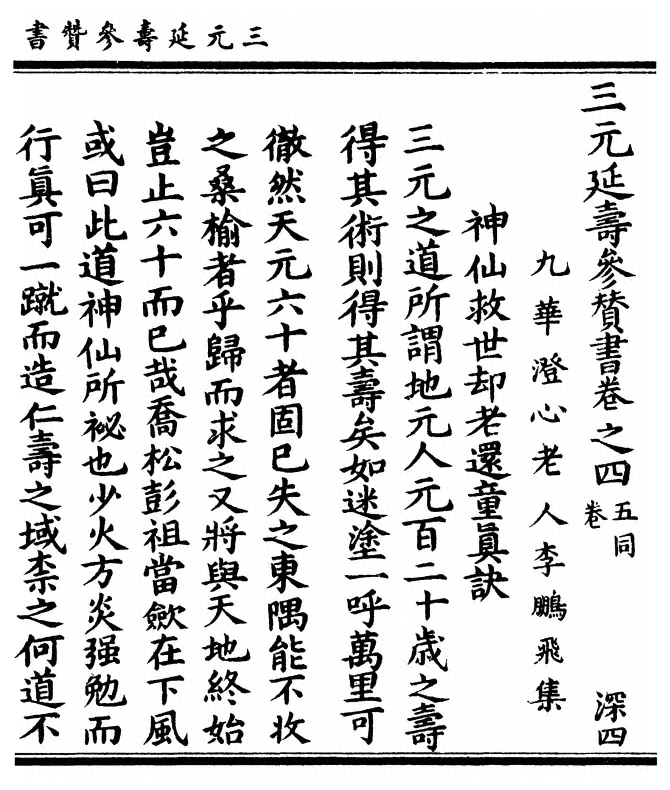 三元延壽參贊書
三元延壽參贊書卷之四 五同卷 深四
九華澄心老人李鵬飛集
神仙救世却老還童眞訣
三元之道所謂地元人元百二十歲之壽
得其術則得其壽矣如迷塗一呼萬里可
徹然天元六十者固已失之東隅能不收
之桑榆者乎歸而求之又將與天地終始
豈止六十而已哉喬松彭祖當歛在下風
或曰此道神仙所祕也少火方炎强勉而
行眞可一蹴而造仁壽之域柰之何道不